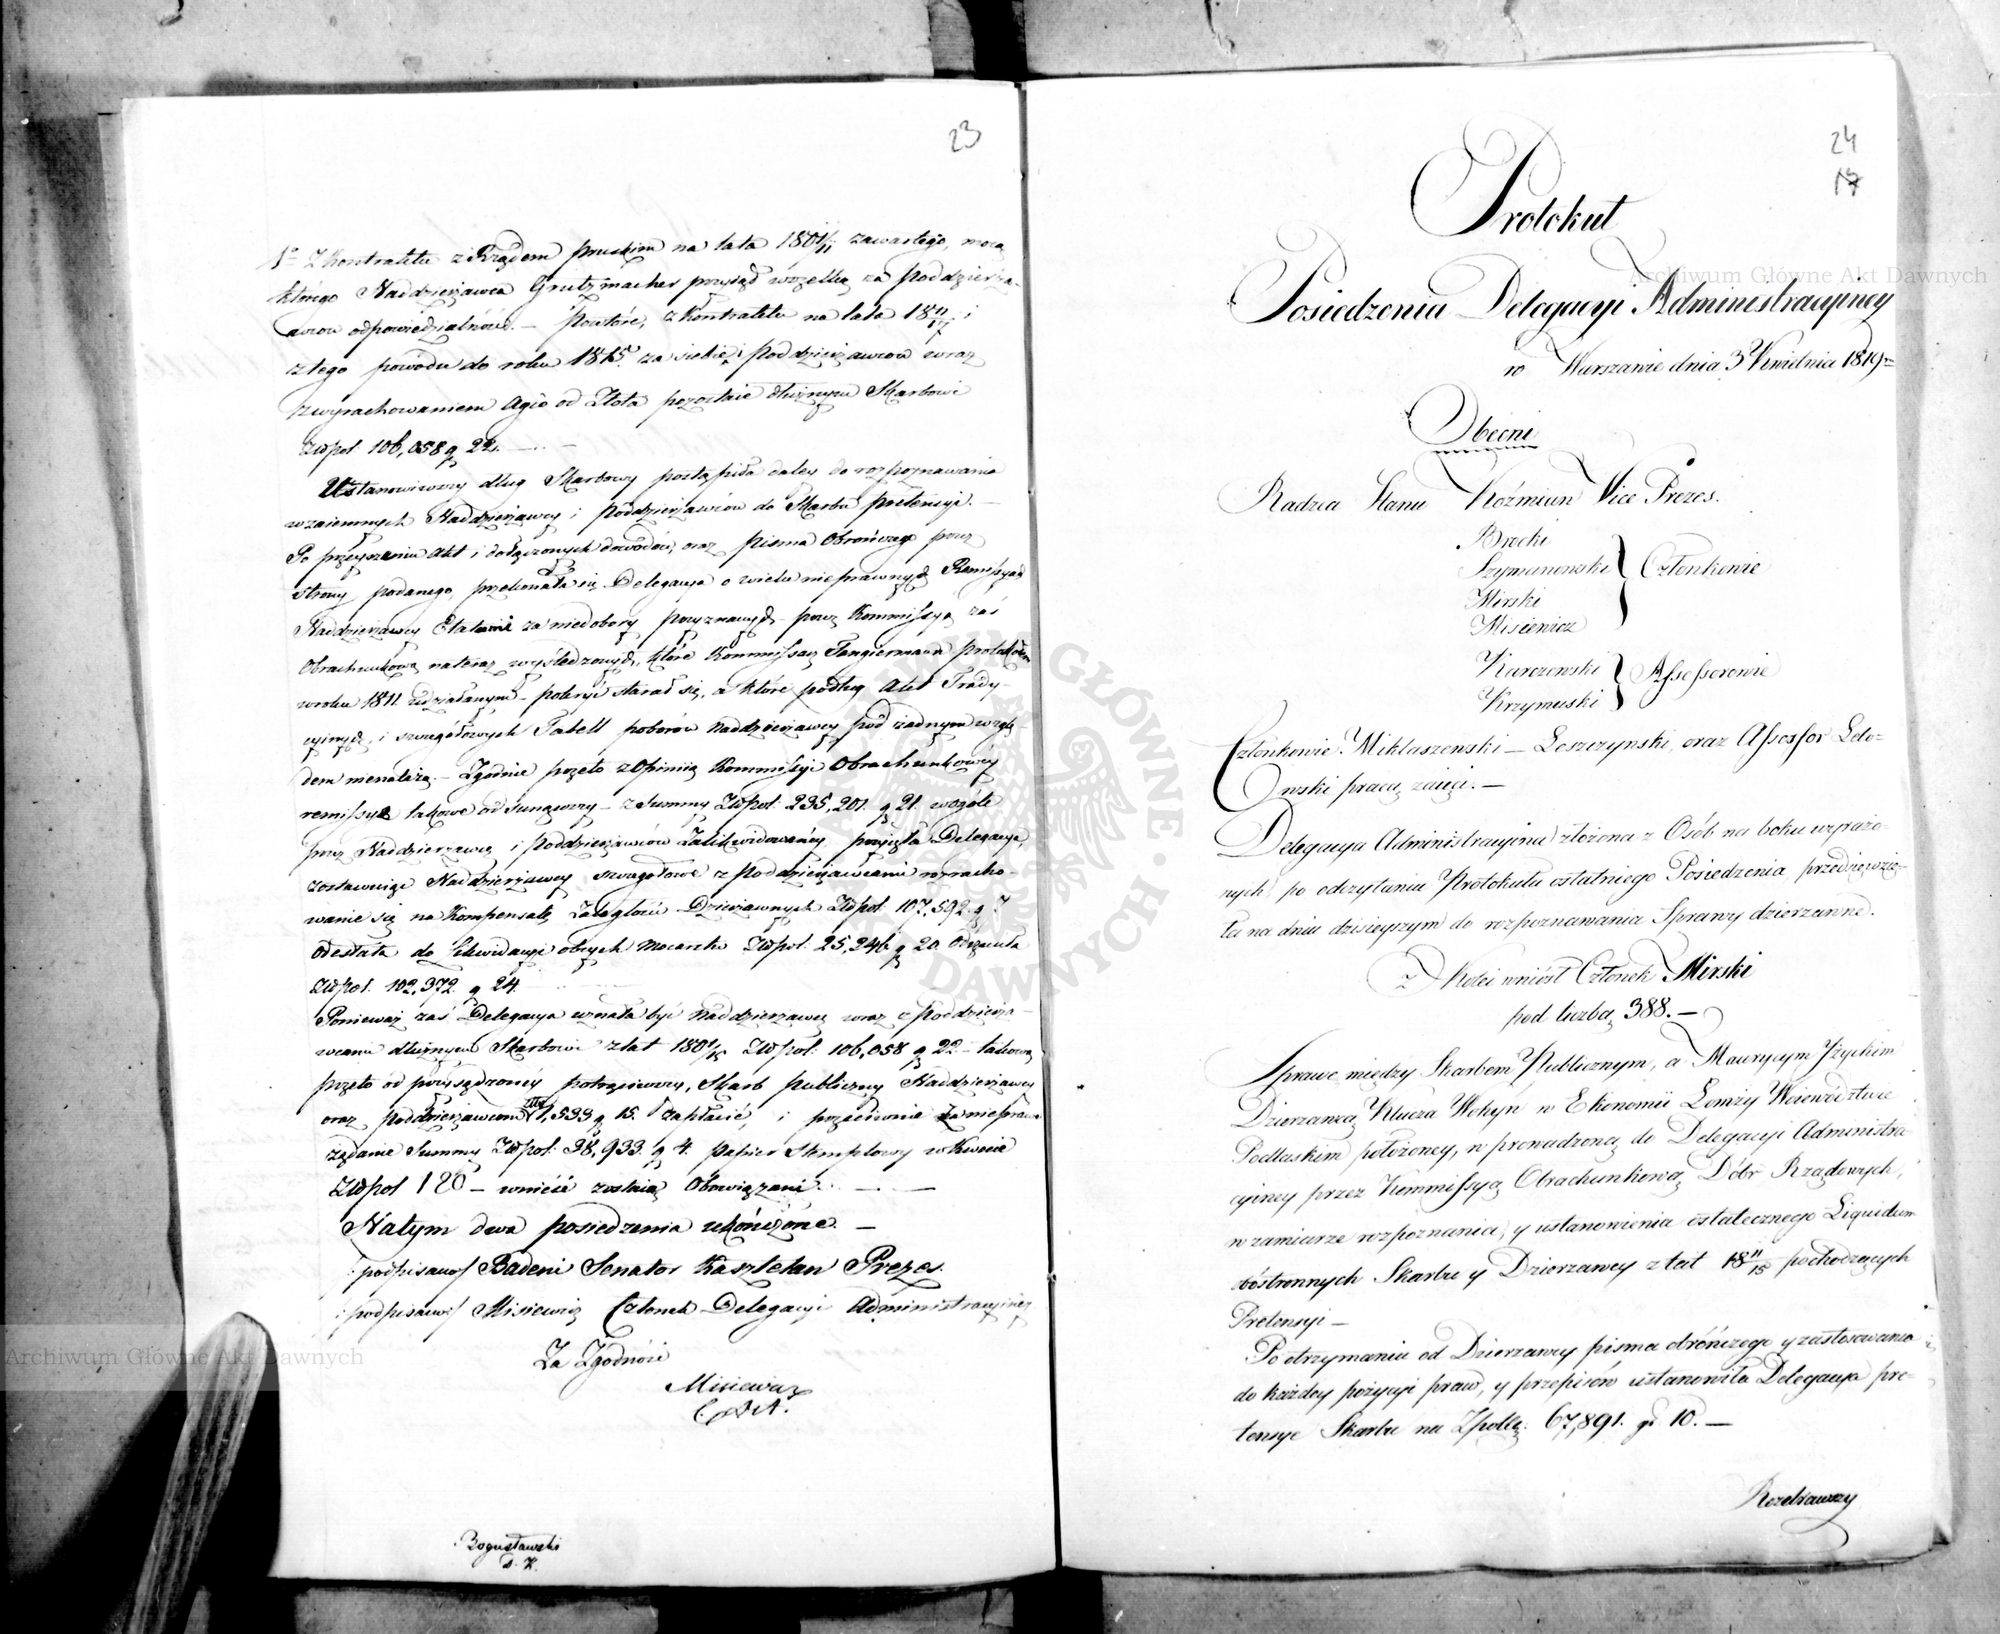 23
1º Z kontraktu z Rządem pruskim na lata 1801/11 zawartego, mocą
którego Naddzierżawca Grützmacher przyiął wszelką za Poddzierża-
wców odpowiedzialność. – Powtóre, z kontraktu na lata 18 11/17 i
z tego powodu do roku 1815. za siebie i Poddzierżawców wraz
z wyrachowaniem Agio od Złota pozostaie dłużnym Skarbowi
Złłpol: 106,058 g 22.
Ustanowiwszy dług Skarbowy postąpiła daley do rozpoznawania
wzaiemnych Naddzierżawcy i Poddzierżawców do Skarbu pretensyi. –
Po przeyrzeniu Akt i dołączonych dowodów, oraz pisma Obrończego przez
strony podanego, przekonała się Delegacya o wielu nieprawnych Remissyach
Naddzierżawcy Etatami za niedobory przyznanych, przez Kommissyą zaś
Obrachunkową nateraz wyśledzonych, które Kommissarz Tangiermann Protokółem
w roku 1811 zdziałanym – pokryć starał się, a które podług Akt Trady-
cyinych, i szczegółowych Tabell poborów Naddzierżawcy pod żadnym wzglę-
dem nienależą. – Zgodnie przeto z Opinią Kommissyi Obrachunkowéy
remissye takowe odsunąwszy – z Summy Złłpol: 235,201. g 21. wogóle
przez Naddzierżawcę i Poddzierżawców Zalikwidowanéy, przyięła Delegacya,
zostawuiąc Naddzierżawcy szczegółowe z Poddzierżawcami rozracho-
wanie się na Kompensatę Zaległości Dzierżawnych Złłpol: 107,592. g 7
Odesłała do Likwidacyi obcych Mocarstw Złłpol: 25,246 g 20. Odrzuciła
Złłpol: 102,372. g 24.
Ponieważ zaś Delegacya uznała być Naddzierżawcę wraz z Poddzierża-
wcami dłużnym Skarbowi z lat 1801/15 Złłpol: 106,058 g 22 – takową
przeto od przysądzonéy potrąciwszy, Skarb publiczny Naddzierżawcy
oraz Poddzierżawcom Złł 1,533 g 15. zapłacić, i przeciwnie za nieprawne
żądanie Summy Złłpol: 38,933. g 4. papier Stemplowy w kwocie
Złłpol 120 – wnieść zostaią Obowiązani.
Natym dwa posiedzenia ukończone. –
/podpisano/ Badeni Senator Kasztelan Prezes.
/podpisano/ Misiewicz Członek Delegacyi Administracyiney
Za Zgodność
Misiewicz
C. D. A.
Bogusławski
24
17
Protokuł
Posiedzenia Delegacyi Administracyiney
w Warszawie dnia 3 Kwietnia 1819 r.
Obecni
Radzca Stanu Koźmian Vice Prezes.
Brocki
Szymanowski } Członkowie
Mirski
Misiewicz
Karczewski } Assessorowie
Krzymuski
Członkowie: Miklaszewski – Leszczynski, oraz Assessor Leto-
wski pracą zaięci. –
Delegacya Administracyina złożona z Osób na boku wyrażo-
nych, po odczytaniu Protokułu ostatniego Posiedzenia przedsięwzię-
ła na dniu dzisieyszym do rozpoznawania Sprawy dzierżawne.
Z Kolei wniósł Członek Mirski
pod liczbą 388. –
Sprawę między Skarbem Publicznym, a Maurycym Yżyckim
Dzierżawcą Klucza Wohyn w Ekonomii Łomży Woiewództwie
Podlaskim położoney, wprowadzoną do Delegacyi Administra
cyiney przez Kommissyą Obrachunkową Dóbr Rządowych,
w zamiarze rozpoznania, y ustanowienia ostatecznego Liquidum
obóstronnych Skarbu y Dzierzawcy z lat 18 11/15 pochodzących
Pretensyi –
Po otrzymaniu od Dzierzawcy pisma obrończego y zastosowaniu
do każdey pozycyi praw, y przepisów ustanowiła Delegacya pre-
tensye Skarbu na Złpolłł: 67,891. gr 10. –
Rozebrawszy
Archiwum Główne Akt Dawnych
Archiwum Główne Akt Dawnych
ARCHIWUM GŁÓWNE AKT DAWNYCH